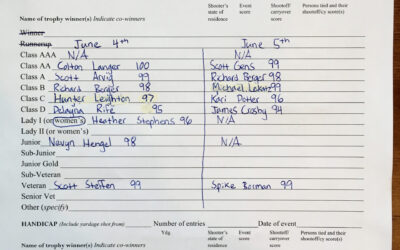 Shooter's Event Shootoff/ Persons tied and their
state of score carryover shootoff/cy score(s)
Name of trophy winner(s) Indicate co-winners residence score
Winner
Runnerup June 4th June 5th
Class AAA N/A N/A
Class AA Colton Langer 100 Scott Gens 99
Class A Scott Arvig 99 Richard Berger 98
Class B Richard Berger 98 Michael 99
Class C Hunter Leighton 97 Kari Dotter 96
Class D 95 James Crosby 94
Lady I (or women's) Heather Stephens 96 N/A
Lady II (or women's)
Junior Navyn Hengel 98 N/A
Sub-Junior
Junior Gold
Sub-Veteran
Veteran Scott 99 Spike 99
Senior Vet
Other (specify)
HANDICAP (Include yardage shot from) Number of entries Date of event
Ydg. Shooter's Event Shootoff/ Persons tied and their
state of score carryover shootoff/cy score(s)
Name of trophy winner(s) Indicate co-winners